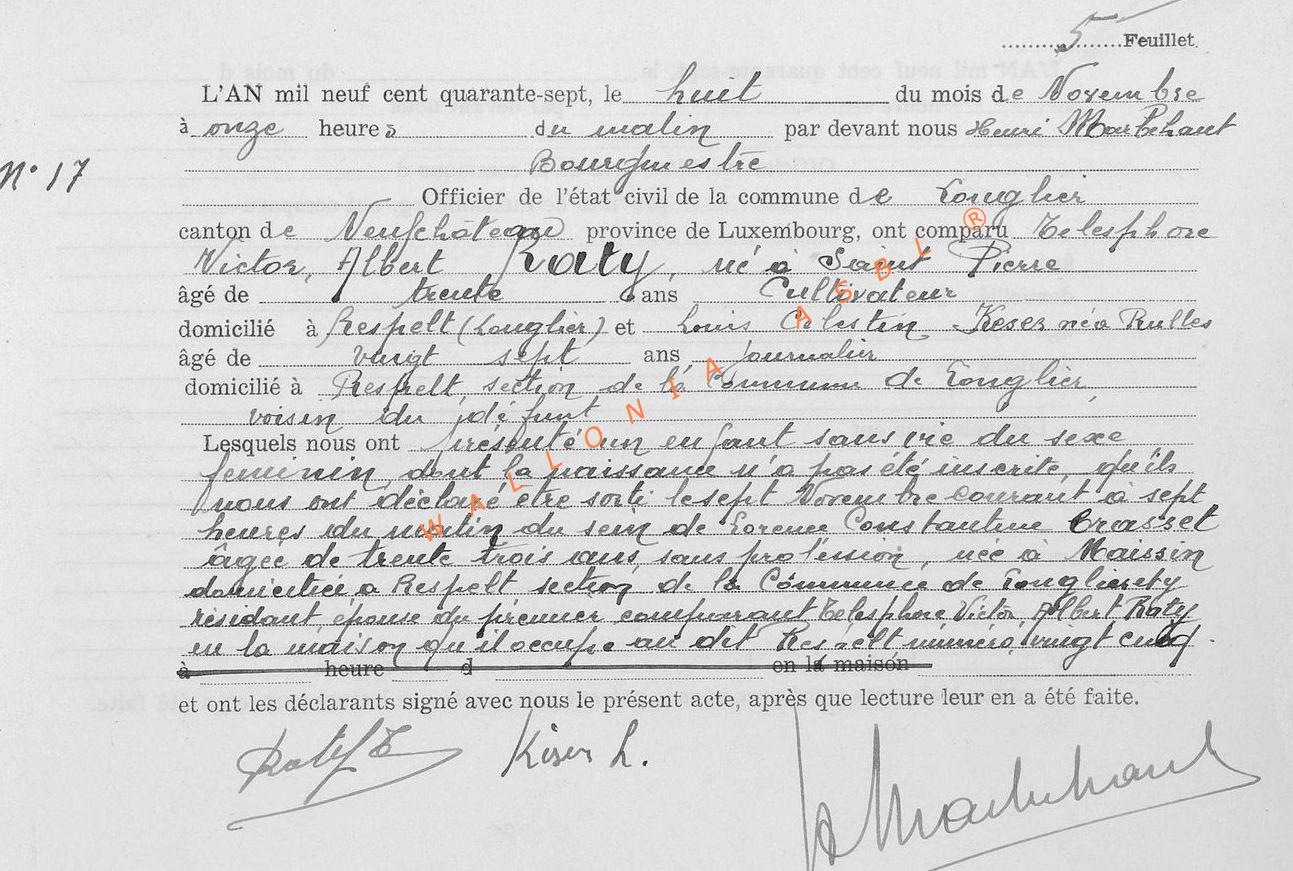 5 Feuillet
L'AN mil neuf cent quarante-sept, le huit du mois de Novembre
à onze heures du matin par devant nous Henri
N° 17
Bourgmestre
Officier de l'état civil de la commune de Longlier
canton de Neufchâteau province de Luxembourg, ont comparu Télesphore
Victor, Albert Raty, né à Saint Pierre
âgé de trente ans Cultivateur
domicilié à Respelt (Longlier) et Louis Célestin né à Rulles
âgé de vingt sept ans journalier
domicilié à Respelt, section de la Commune de Longlier,
voisin du défunt
Lesquels nous ont présenté un enfant sans vie du sexe
féminin, dont la naissance n'a pas été inscrite, qu'ils
nous ont déclaré être sorti le sept Novembre courant à sept
heures du matin du sein de Lorence Constantine Crasset
âgée de trente trois ans, sans profession, née à Maissin
domiciliée à Respelt section de la Commune de Longlier et y
résidant, épouse du premier comparant Télesphore Victor, Albert Raty
en la maison qu'il occupe au dit Respelt numéro vingt cinq.
à heure d en la maison
et ont les déclarants signé avec nous le présent acte, après que lecture leur en a été faite.
Raty T
L.
WALLONIA ASBL ®